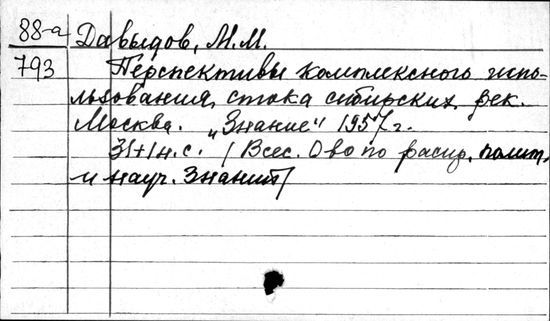 88-а Давыдов, М.М.
793 Перспективы комплексного испо-
льзования стока сибирских рек.
Москва. „Знание" 1957 г.
31+1 н.с. (Всес. О-во по распр. полит.
и науч. знаний)